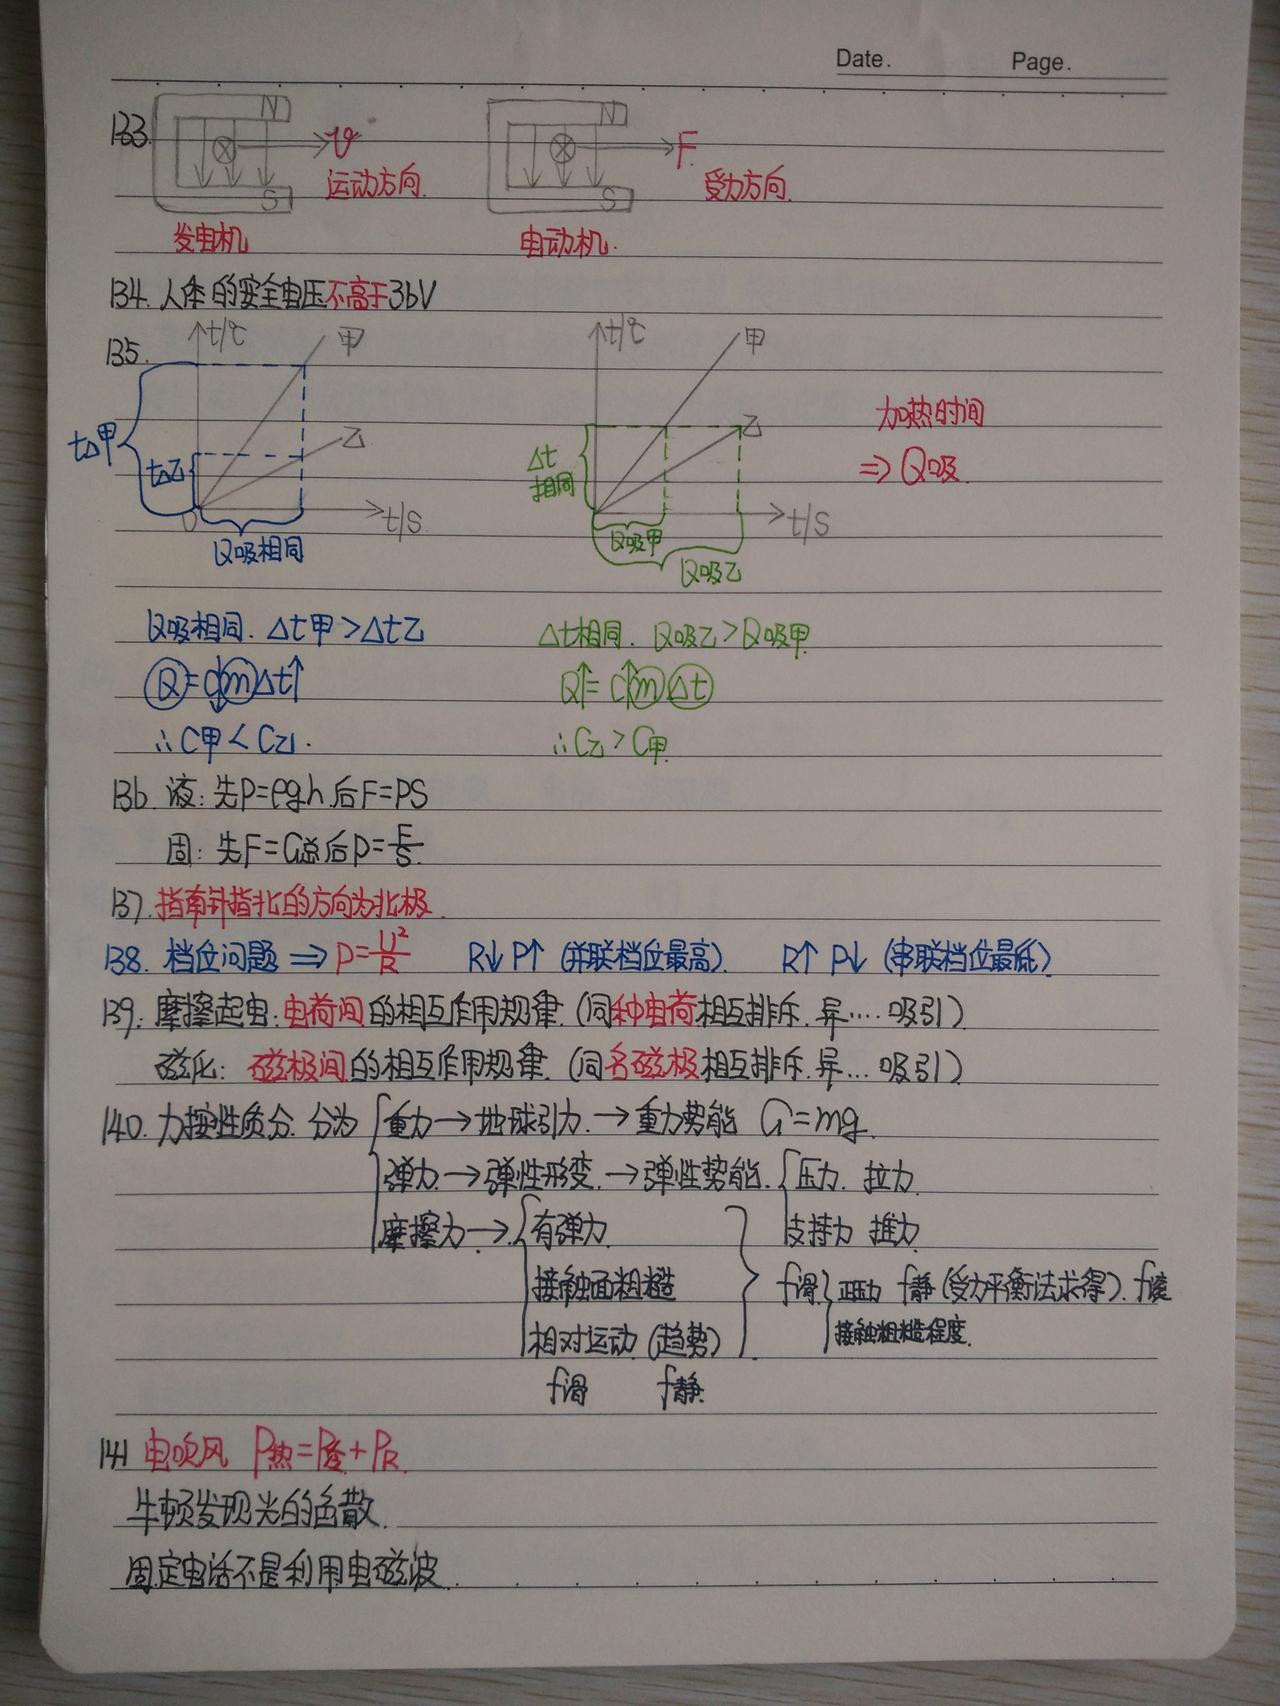 Date. Page.
133. N S v 运动方向. 发电机
N S F 受力方向. 电动机.
134. 人体的安全电压不高于36V
135. t/℃ 甲 乙 t△甲 t△乙 0 t/S Q吸相同
t/℃ 甲 乙 △t相同 t/S Q吸甲 Q吸乙
加热时间
⇒ Q吸.
Q吸相同. △t甲>△t乙
△t相同. Q吸乙>Q吸甲.
Q=c↓m△t↑
Q↑=c↑m△t
∴C甲<C乙.
∴C乙>C甲.
136. 液: 先P=ρgh.后F=PS
固: 先F=G总后P=F/S.
137. 指南针指北的方向为北极.
138. 档位问题 ⇒ P=U²/R R↓ P↑ (并联档位最高). R↑ P↓ (串联档位最低)
139. 摩擦起电: 电荷间的相互作用规律. (同种电荷相互排斥. 异....吸引).
磁化: 磁极间的相互作用规律. (同名磁极相互排斥. 异... 吸引).
140. 力按性质分. 分为 重力→地球引力.→重力势能 G=mg.
弹力→弹性形变.→弹性势能. 压力. 拉力.
摩擦力→ 有弹力. 支持力 推力.
接触面粗糙 f滑 正压力 f静(受力平衡法求得). f滚
相对运动 (趋势) 接触粗糙程度.
f滑 f静.
141 电吹风 P热=P总+PR.
牛顿发现光的色散.
固定电话不是利用电磁波.